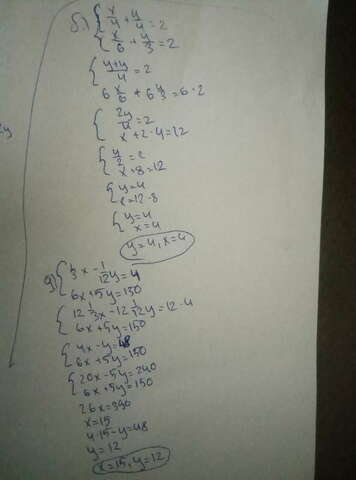 б) { x/4 + y/4 = 2
x/6 + y/3 = 2
{ y+y/4 = 2
6 x/6 + 6 y/3 = 6·2
{ 2y/4 = 2
x + 2·y = 12
{ y/2 = 2
x + 8 = 12
{ y = 4
x = 12 - 8
{ y = 4
x = 4
y = 4, x = 4
g) { 1/3 x - 1/12 y = 4
6x + 5y = 150
{ 12 1/3 x - 12 1/12 y = 12·4
6x + 5y = 150
{ 4x - y = 48
6x + 5y = 150
{ 20x - 5y = 240
6x + 5y = 150
26x = 390
x = 15
4·15 - y = 48
y = 12
x = 15, y = 12